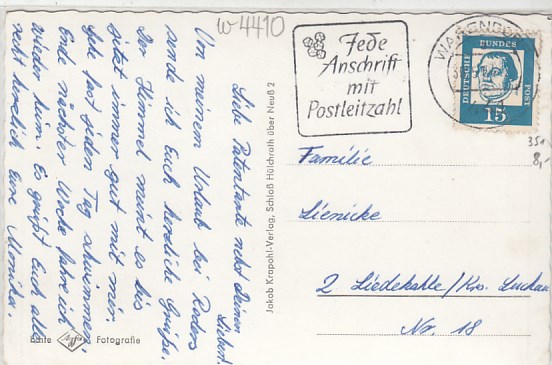 w 4410
Liebe Patentante nebst Deinen Lieben!
Von meinem Urlaub bei
sende ich Euch herzliche Grüße.
Der Himmel meint es bis
jetzt immer gut mit mir.
Gehe fast jeden Tag schwimmen.
Ende nächster Woche fahre ich
wieder heim. Es grüßt Euch alle
recht herzlich Eure Monika.
Echte Agfa Fotografie
Jakob Krapohl-Verlag, Schloß Hülchrath über Neuß 2
Jede
Anschrift
mit
Postleitzahl
WARENDORF
DEUTSCHE
BUNDES
POST
15
351
8,-
Familie
Lienicke
2 Liedekahle/Krs. Luckau
Nr. 18